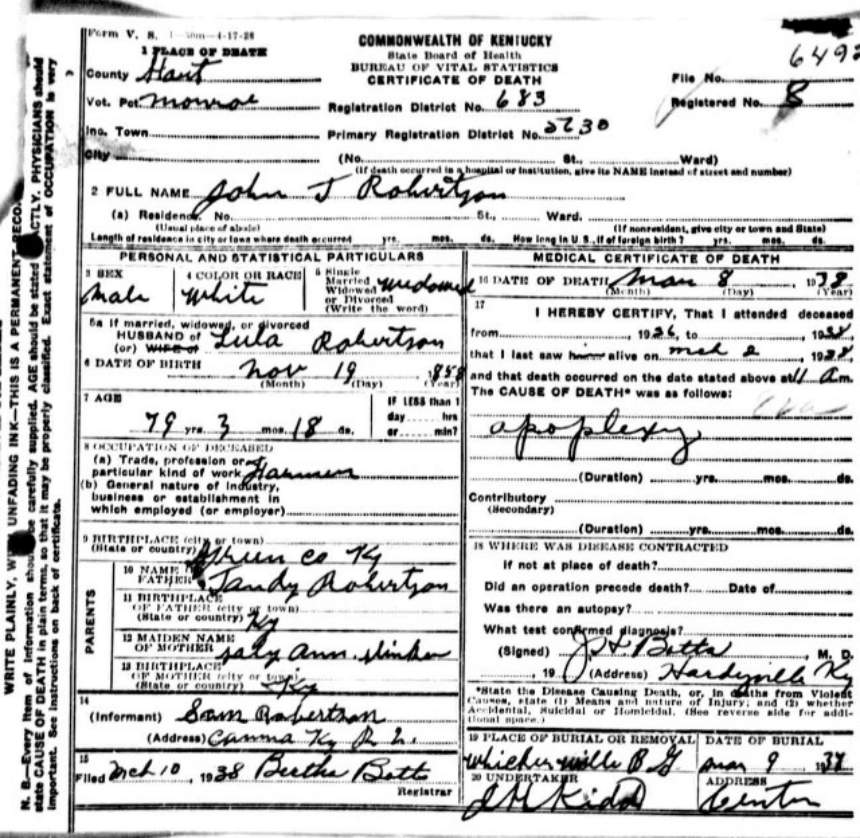 Form V. S. 1
4-17-28
6492
COMMONWEALTH OF KENTUCKY
State Board of Health
BUREAU OF VITAL STATISTICS
CERTIFICATE OF DEATH
1 PLACE OF DEATH
County Hart
File No.
Vot. Pct. Monroe
Registration District No. 683
Registered No. 8
Inc. Town
Primary Registration District No. 5630
City
(No. St., Ward)
(If death occurred in a hospital or institution, give its NAME instead of street and number)
2 FULL NAME John T Robertson
(a) Residence. No. St., Ward.
(Usual place of abode) (If nonresident, give city or town and State)
Length of residence in city or town where death occurred yrs. mos. ds. How long in U. S., if of foreign birth? yrs. mos. ds.
PERSONAL AND STATISTICAL PARTICULARS
3 SEX
Male
4 COLOR OR RACE
White
5 Single
Married
Widowed
or Divorced
(Write the word)
widowed
5a If married, widowed, or divorced
HUSBAND of
(or) WIFE of
Lula Robertson
6 DATE OF BIRTH
Nov 19 1858
(Month) (Day) (Year)
7 AGE
79 yrs. 3 mos. 18 ds.
IF LESS than 1
day hrs
or min?
8 OCCUPATION OF DECEASED
(a) Trade, profession or
particular kind of work Farmer
(b) General nature of Industry,
business or establishment in
which employed (or employer)
9 BIRTHPLACE (city or town)
(State or country) Green Co Ky
PARENTS
10 NAME
FATHER Tandy Robertson
11 BIRTHPLACE
OF FATHER (city or town)
(State or country) Ky
12 MAIDEN NAME
OF MOTHER Saly Ann
13 BIRTHPLACE
OF MOTHER (city or town)
(State or country) Ky
14
(Informant) Sam Robertson
(Address) Canma Ky R 2.
15
Filed Mch 10, 1938 Bertha Botts
Registrar
MEDICAL CERTIFICATE OF DEATH
16 DATE OF DEATH Mar 8 1938
(Month) (Day) (Year)
17
I HEREBY CERTIFY, That I attended deceased
from 1936, to 1938
that I last saw him alive on Mch 2, 1938
and that death occurred on the date stated above at 11 Am.
The CAUSE OF DEATH* was as follows:
apoplexy
(Duration) yrs. mos. ds.
Contributory
(Secondary)
(Duration) yrs. mos. ds.
18 WHERE WAS DISEASE CONTRACTED
if not at place of death?
Did an operation precede death? Date of
Was there an autopsy?
What test confirmed diagnosis?
(Signed) J. H. Botts, M. D.
, 19 (Address) Hardyville Ky
*State the Disease Causing Death, or, in deaths from Violent
Causes, state (1) Means and nature of Injury; and (2) whether
Accidental, Suicidal or Homicidal. (See reverse side for addi-
tional space.)
19 PLACE OF BURIAL OR REMOVAL
Whickerville B G
DATE OF BURIAL
Mar 9 1938
20 UNDERTAKER
J H Kidd
ADDRESS
Center
WRITE PLAINLY, WITH UNFADING INK—THIS IS A PERMANENT RECORD
N. B.—Every item of information should be carefully supplied. AGE should be stated EXACTLY. PHYSICIANS should
state CAUSE OF DEATH in plain terms, so that it may be properly classified. Exact statement of OCCUPATION is very
important. See instructions on back of certificate.